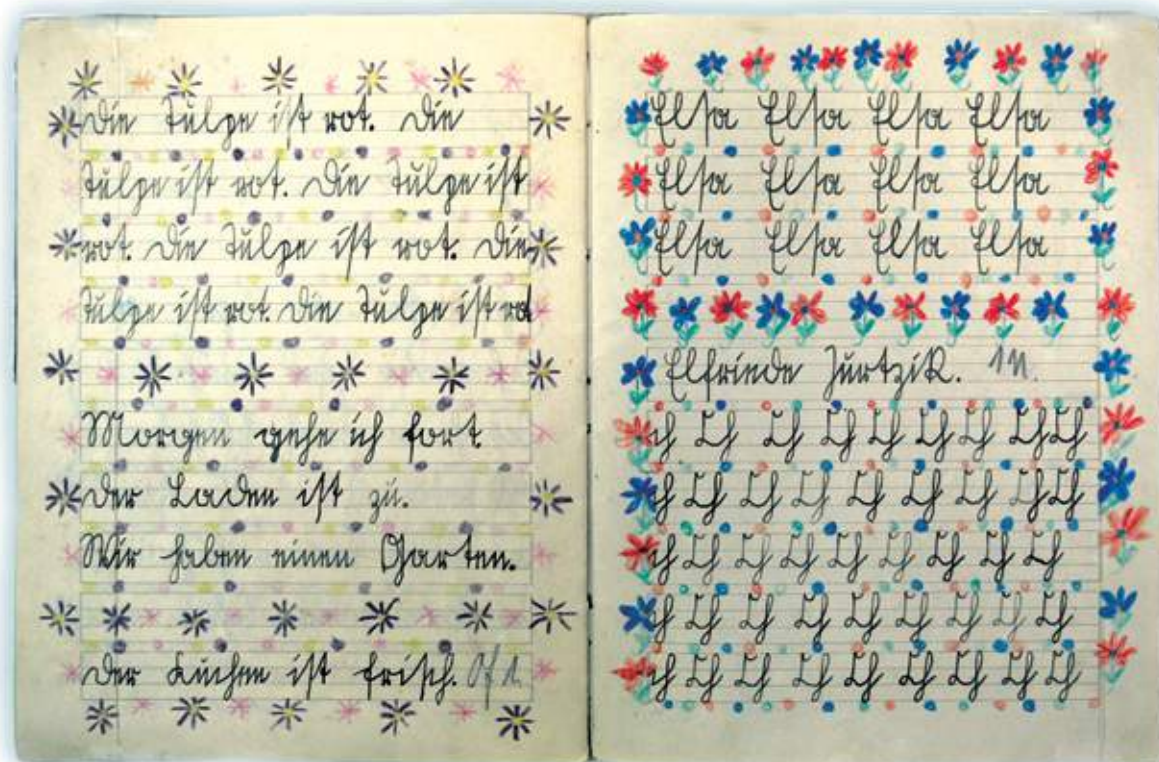 Die Tulpe ist rot. Die
Tulpe ist rot. Die Tulpe ist
rot. Die Tulpe ist rot. Die
Tulpe ist rot. Die Tulpe ist rot
Morgen gehe ich fort.
Der Laden ist zu.
Wir haben einen Garten.
Der Kuchen ist frisch.
Elsa Elsa Elsa Elsa
Elsa Elsa Elsa Elsa
Elsa Elsa Elsa Elsa
Elfriede
Ch Ch Ch Ch Ch Ch Ch Ch Ch
Ch Ch Ch Ch Ch Ch Ch Ch Ch
Ch Ch Ch Ch Ch Ch Ch Ch Ch
Ch Ch Ch Ch Ch Ch Ch Ch Ch
Ch Ch Ch Ch Ch Ch Ch Ch Ch